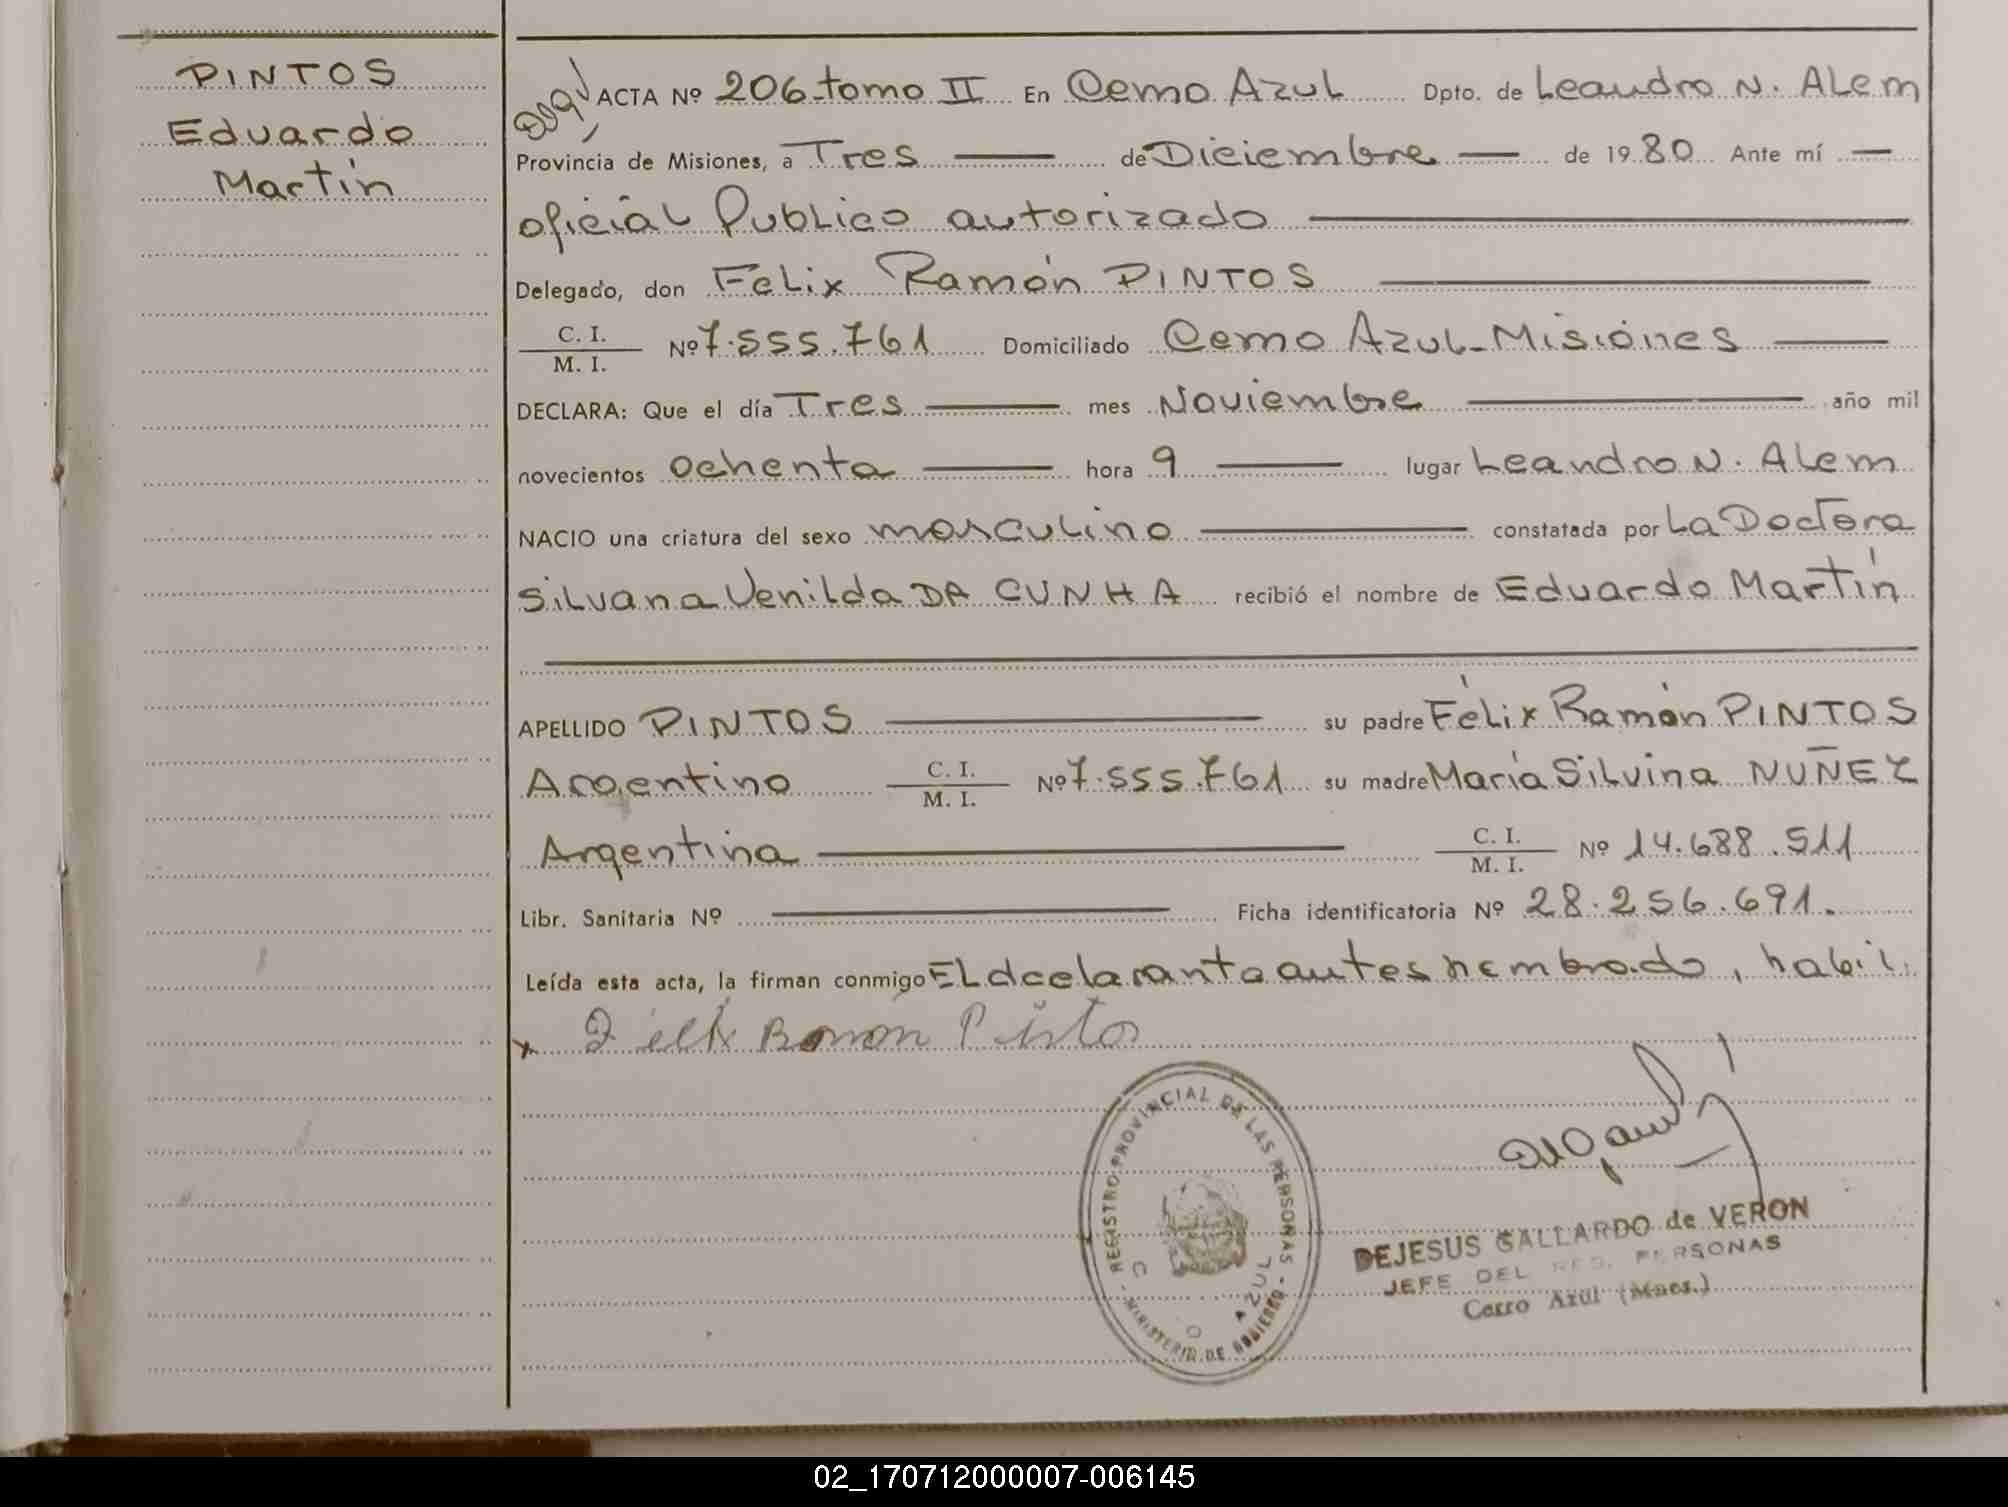 PINTOS
Eduardo
Martín
ACTA Nº 206 tomo II En Cerro Azul Dpto. de Leandro N. Alem
Provincia de Misiones, a Tres de Diciembre de 1980 Ante mí
oficial Publico autorizado
Delegado, don Felix Ramón PINTOS
C. I.
M. I. Nº 7.555.761 Domiciliado Cerro Azul-Misiónes
DECLARA: Que el día Tres mes Noviembre año mil
novecientos ochenta hora 9 lugar Leandro N. Alem
NACIO una criatura del sexo masculino constatada por La Doctora
Silvana Venilda DA CUNHA recibió el nombre de Eduardo Martín
APELLIDO PINTOS su padre Félix Ramón PINTOS
Argentino C. I.
M. I. Nº 7.555.761 su madre María Silvina NUÑEZ
Argentina C. I.
M. I. Nº 14.688.511
Libr. Sanitaria Nº Ficha identificatoria Nº 28.256.691.
Leída esta acta, la firman conmigo El declarante antes nombrado, habil.
x Félix Ramón Pintos
REGISTRO PROVINCIAL DE LAS PERSONAS
MINISTERIO DE GOBIERNO
C AZUL
DEJESUS GALLARDO de VERON
JEFE DEL REG. PERSONAS
Cerro Azul (Mnes.)
02_170712000007-006145